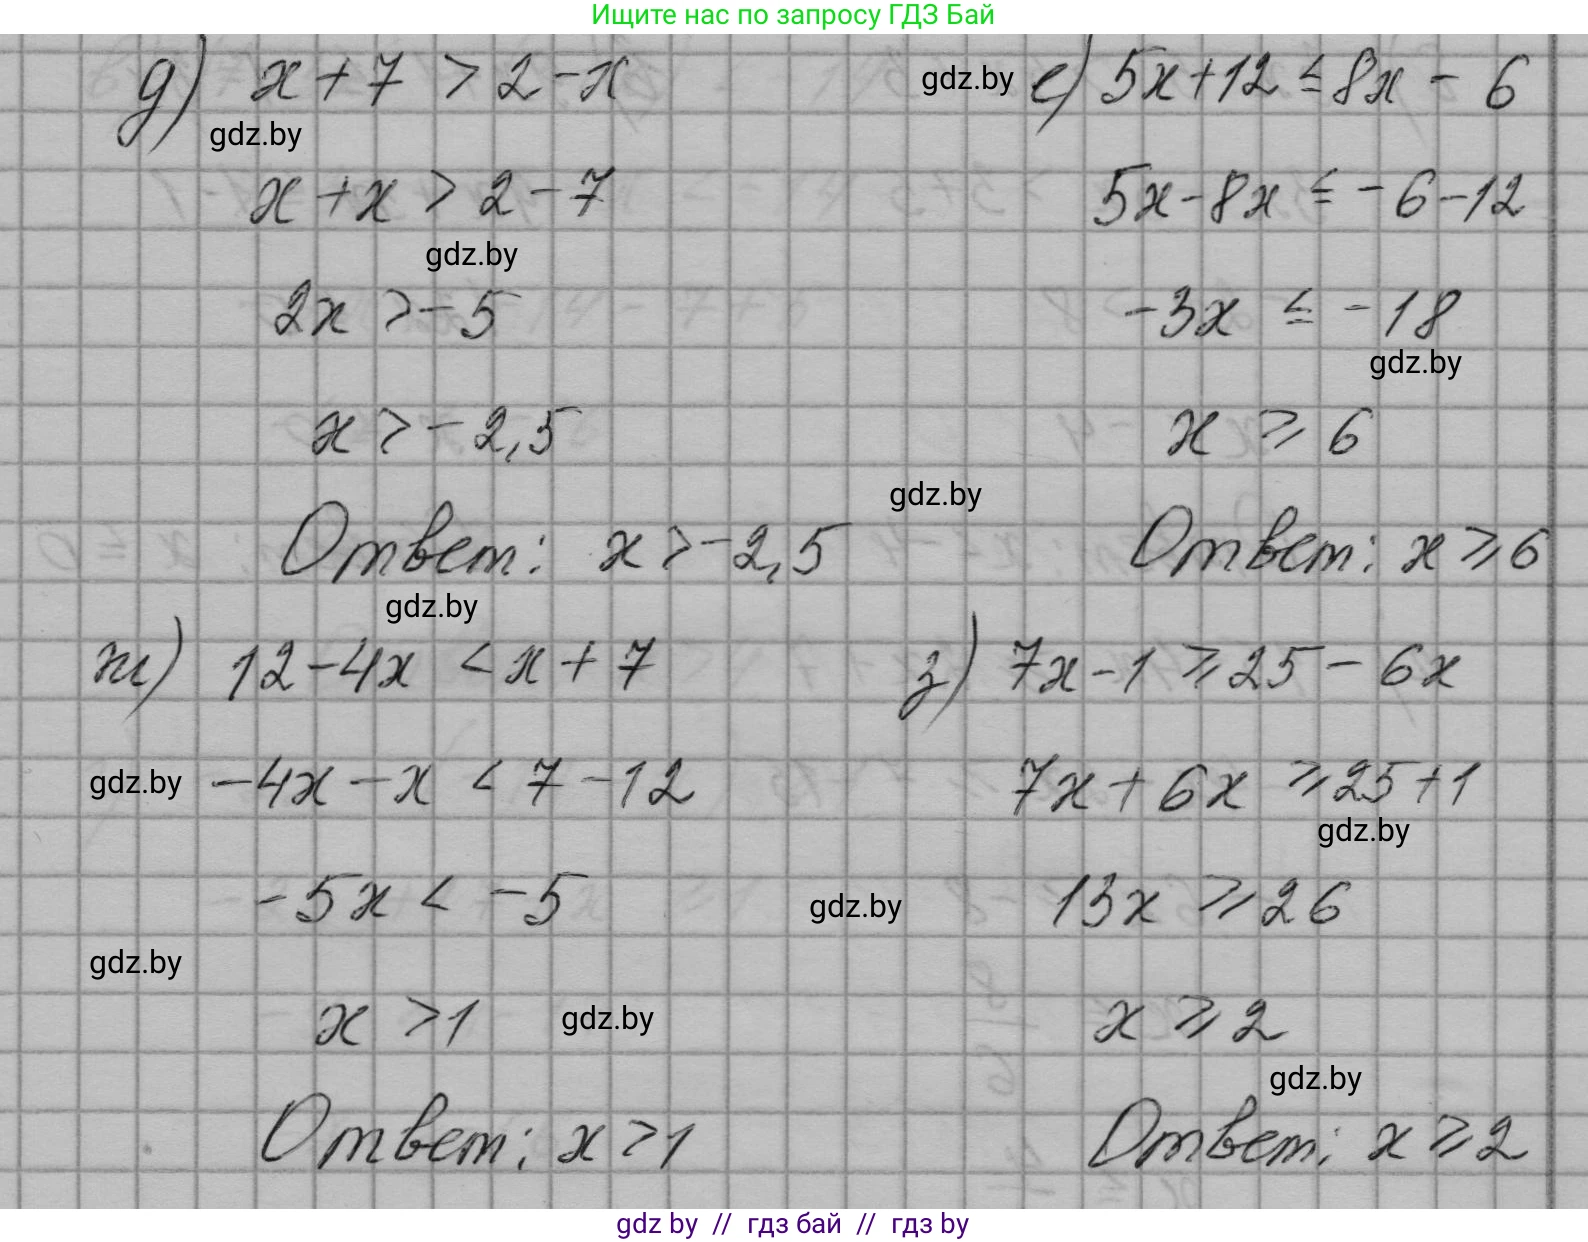 Ищите нас по запросу ГДЗ Бай
д) x + 7 > 2 - x
gdz.by
x + x > 2 - 7
gdz.by
2x > -5
x > -2,5
Ответ: x > -2,5
gdz.by
gdz.by
е) 5x + 12 ≤ 8x - 6
5x - 8x ≤ -6 - 12
-3x ≤ -18
gdz.by
x ≥ 6
gdz.by
Ответ: x ≥ 6
ж) 12 - 4x < x + 7
gdz.by
-4x - x < 7 - 12
-5x < -5
gdz.by
x > 1
gdz.by
Ответ: x > 1
з) 7x - 1 ≥ 25 - 6x
7x + 6x ≥ 25 + 1
gdz.by
gdz.by
13x ≥ 26
x ≥ 2
gdz.by
Ответ: x ≥ 2
gdz by // гдз бай // гдз by